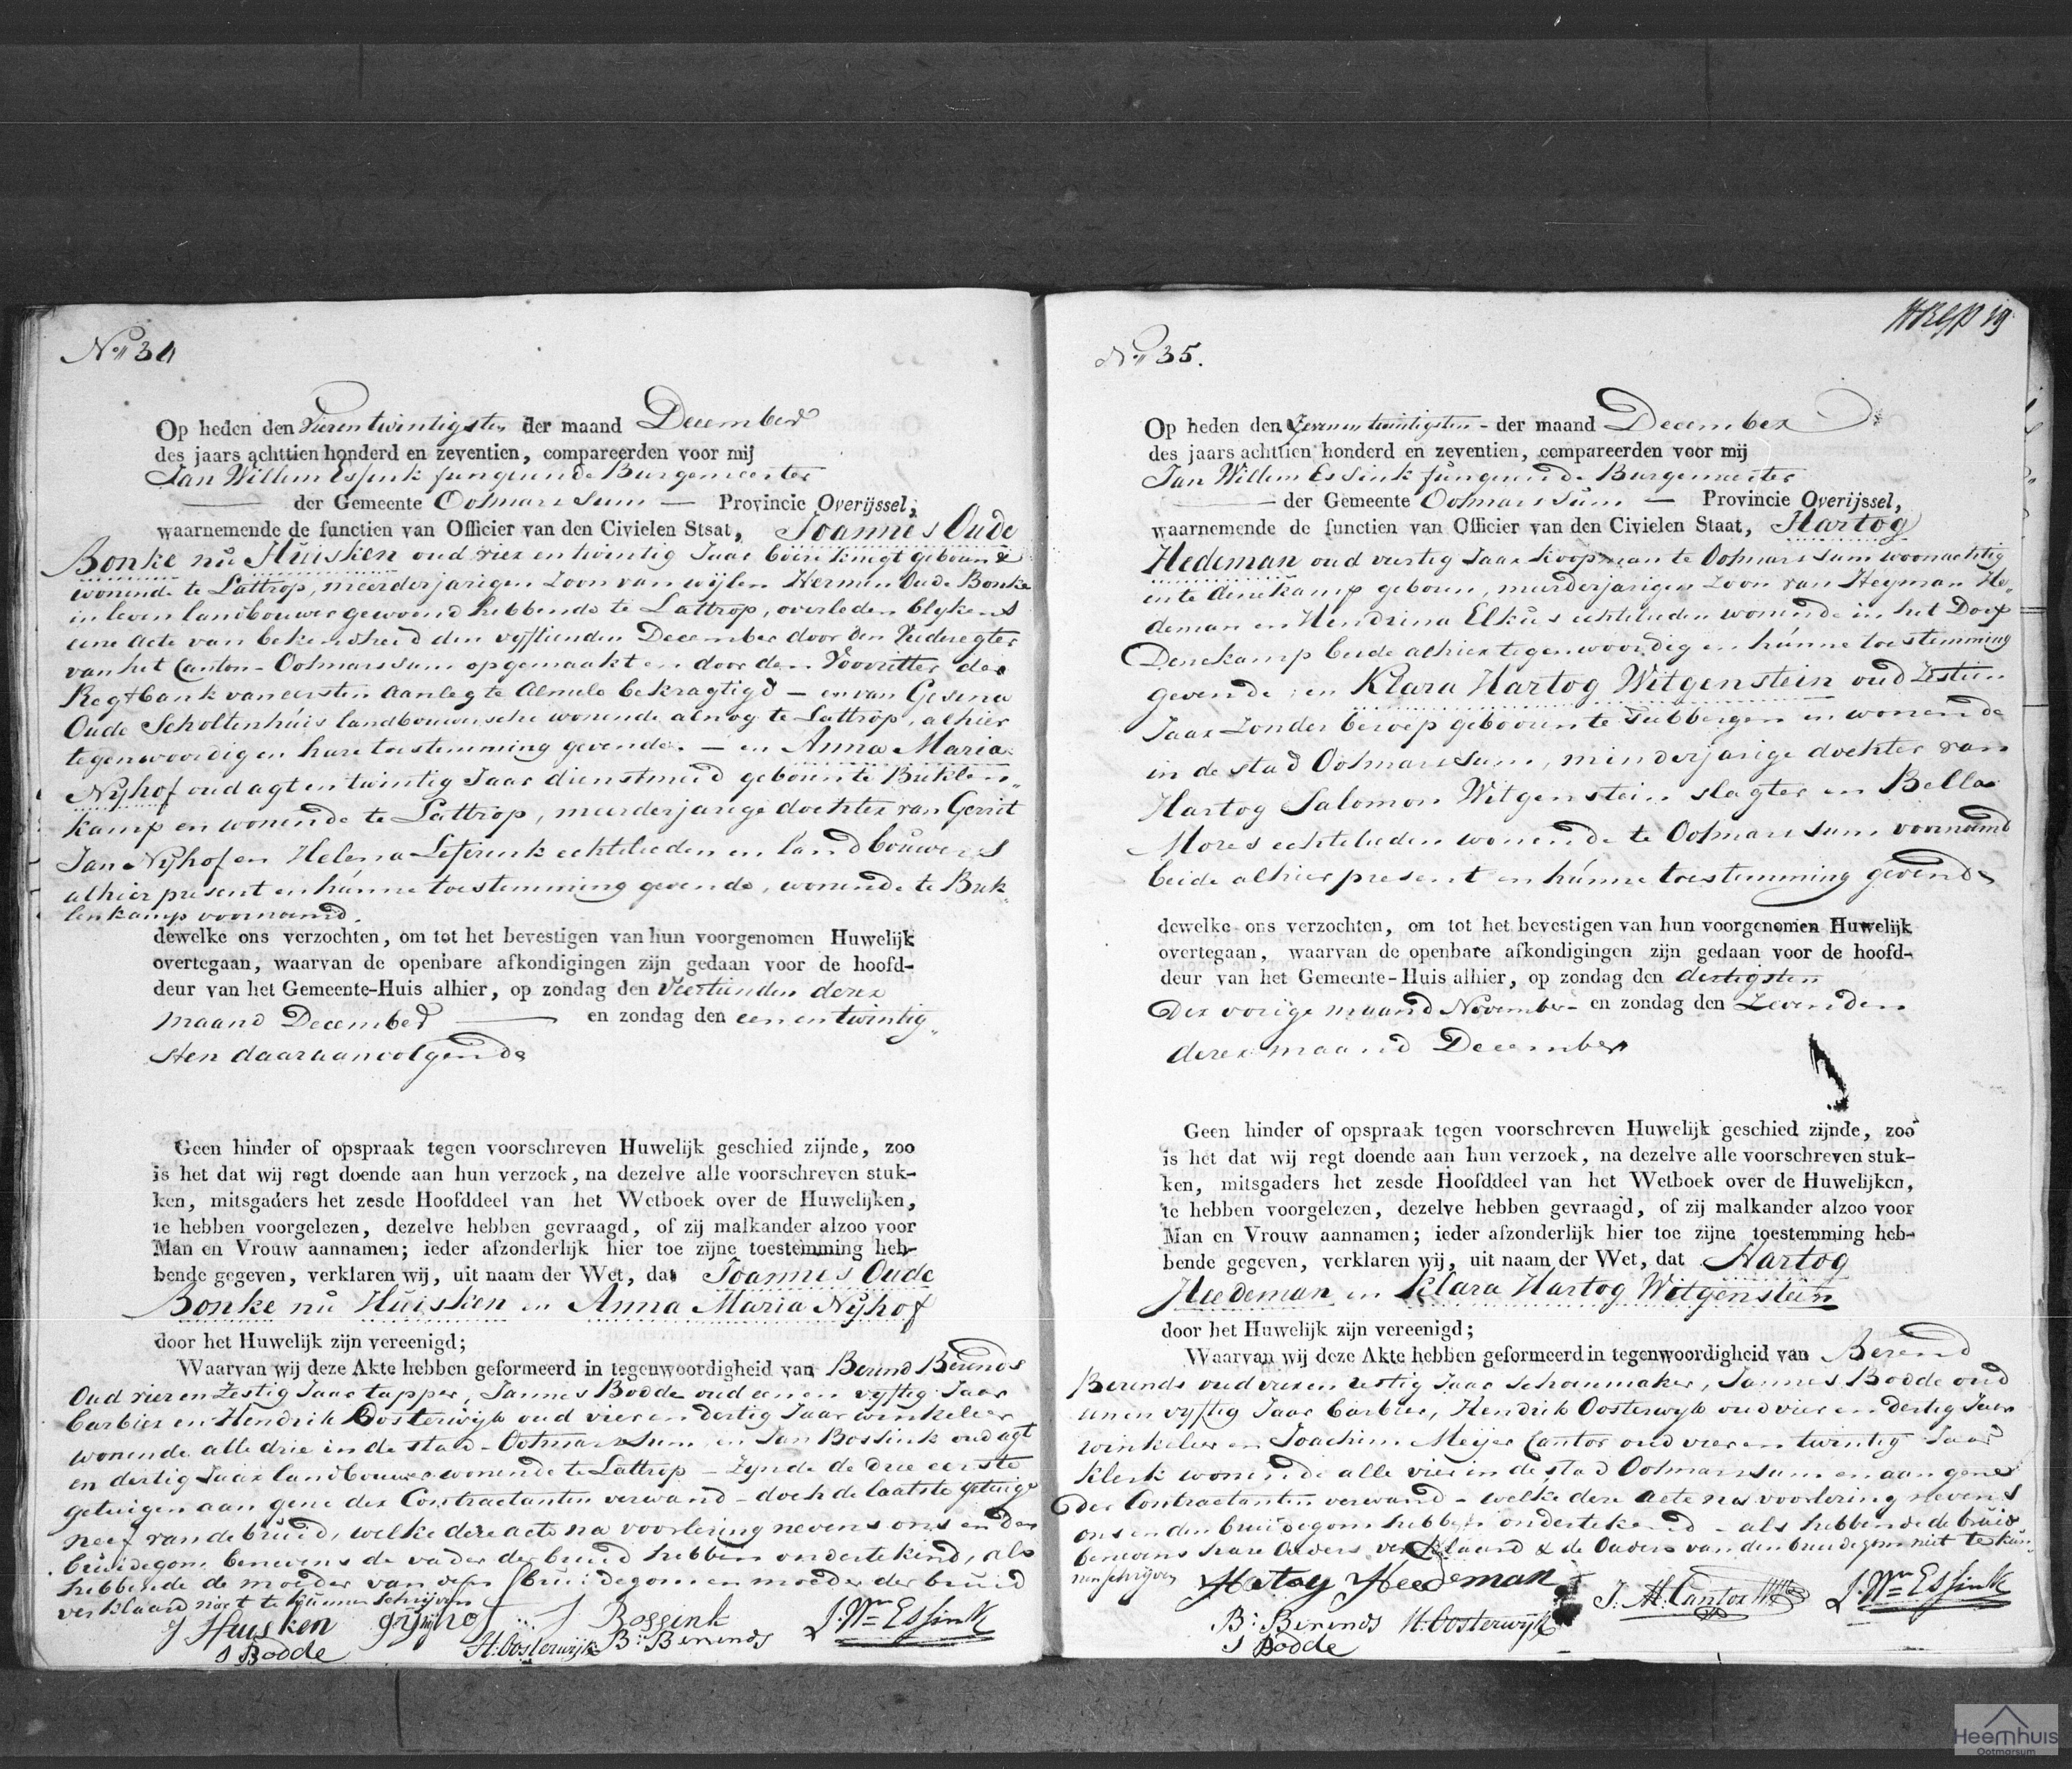 N.º 34
Op heden den Vierentwintigsten der maand December
des jaars achttien honderd en zeventien, compareerden voor mij
Jan Willem Essink fungeerende Burgemeester
der Gemeente Ootmarssum — Provincie Overijssel,
waarnemende de functien van Officier van den Civielen Staat, Joannes Oude
Bonke nu Huisken oud vier en twintig Jaar boere knegt geboren &
wonende te Lattrop, meerderjarigen Zoon van wijlen Hermen Oude Bonke
in leven landbouwer gewoond hebbende te Lattrop, overleden blykens
eene acte van bekendheid den vyftienden December door den Vrederegter
van het Canton Ootmarssum opgemaakt en door den Voorzitter der
Regtbank van eersten Aanleg te Almelo bekragtigd — en van Gesina
Oude Scholtenhuis landbouwersche wonende alnog te Lattrop, alhier
tegenwoordig en hare toestemming gevende. — en Anna Maria
Nyhof oud agt en twintig Jaar dienstmeid geboren te Breklen„
kamp en wonende te Lattrop, meerderjarige dochter van Gerrit
Jan Nyhof en Helena echtelieden en landbouwers
alhier present en hunne toestemming gevende, wonende te Brek„
lenkamp voornoemd.
dewelke ons verzochten, om tot het bevestigen van hun voorgenomen Huwelijk
overtegaan, waarvan de openbare afkondigingen zijn gedaan voor de hoofd-
deur van het Gemeente-Huis alhier, op zondag den Veertienden dezer
maand December — en zondag den een en twintig„
sten daaraanvolgende
Geen hinder of opspraak tegen voorschreven Huwelijk geschied zijnde, zoo
is het dat wij regt doende aan hun verzoek, na dezelve alle voorschreven stuk-
ken, mitsgaders het zesde Hoofddeel van het Wetboek over de Huwelijken,
te hebben voorgelezen, dezelve hebben gevraagd, of zij malkander alzoo voor
Man en Vrouw aannamen; ieder afzonderlijk hier toe zijne toestemming heb-
bende gegeven, verklaren wij, uit naam der Wet, dat Joannes Oude
Bonke nu Huisken en Anna Maria Nyhof
door het Huwelijk zijn vereenigd;
Waarvan wij deze Akte hebben geformeerd in tegenwoordigheid van Berend Berends
Oud vier en Zestig Jaar tapper, Jannes Bodde oud een en vyftig Jaar
barbier en Hendrik Oosterwyk oud vier en dertig Jaar winkelier
wonende alle drie in de stad Ootmarssum, en Jan Bossink oud agt
en dertig Jaar landbouwer wonende te Lattrop — Zynde de drie eerste
getuigen aan gene der Contractanten verwand — doch de laatste getuige
neef van de bruid, welke deze acte na voorlezing nevens ons en den
bruidegom benevens de vader der bruid hebben ondertekend, als
hebbende de moeder van den bruidegom en moeder der bruid
verklaard niet te kunnen schrijven
J Huisken J Bossink J. Wm Essink
J Bodde H. Oosterwijk B: Berends
19
N.º 35.
Op heden den Zevenentwintigsten - der maand December
des jaars achttien honderd en zeventien, compareerden voor mij
Jan Willem Essink fungeerende Burgemeester
— der Gemeente Ootmarssum — Provincie Overijssel,
waarnemende de functien van Officier van den Civielen Staat, Hartog
Hedeman oud veertig Jaar Koopman te Ootmarssum woonachtig
en te denekamp geboren, meerderjarigen Zoon van Heyman He„
deman en Hendrina Elkus echtelieden wonende in het Dorp
Denekamp beide alhier tegenwoordig en hunne toestemming
gevende: en Klara Hartog Witgenstein oud Zestien
Jaar Zonder beroep geboren te Tubbergen en wonende
in de stad Ootmarssum, minderjarige dochter van
Hartog Salomon Witgenstein slagter en Bella
Mozes echtelieden wonende te Ootmarssum voornoemd
beide alhier present en hunne toestemming gevende
dewelke ons verzochten, om tot het bevestigen van hun voorgenomen Huwelijk
overtegaan, waarvan de openbare afkondigingen zijn gedaan voor de hoofd-
deur van het Gemeente-Huis alhier, op zondag den dertigsten
der vorige maand November - en zondag den Zevenden
dezer maand December
Geen hinder of opspraak tegen voorschreven Huwelijk geschied zijnde, zoo
is het dat wij regt doende aan hun verzoek, na dezelve alle voorschreven stuk-
ken, mitsgaders het zesde Hoofddeel van het Wetboek over de Huwelijken,
te hebben voorgelezen, dezelve hebben gevraagd, of zij malkander alzoo voor
Man en Vrouw aannamen; ieder afzonderlijk hier toe zijne toestemming heb-
bende gegeven, verklaren wij, uit naam der Wet, dat Hartog
Heedeman en Klara Hartog Witgenstein
door het Huwelijk zijn vereenigd;
Waarvan wij deze Akte hebben geformeerd in tegenwoordigheid van Berend
Berends oud vier en zestig Jaar Schoenmaker, Jannes Bodde oud
een en vyftig Jaar barbier, Hendrik Oosterwyk oud vier en dertig Jaar
winkelier en Joachim Meijer Cantor oud vier en twintig Jaar
klerk wonende alle vier in de stad Ootmarssum en aan gene
der Contractanten verwand - welke deze acte na voorlezing nevens
ons en den bruidegom hebben ondertekend - als hebbende de bruid
benevens hare Ouders verklaard & de Ouders van den bruidegom niet te kun„
nen schrijven
Hartog Heedeman J: M: Cantor J. Wm Essink
B: Berends H. Oosterwijk
J Bodde
Heemhuis
Ootmarsum